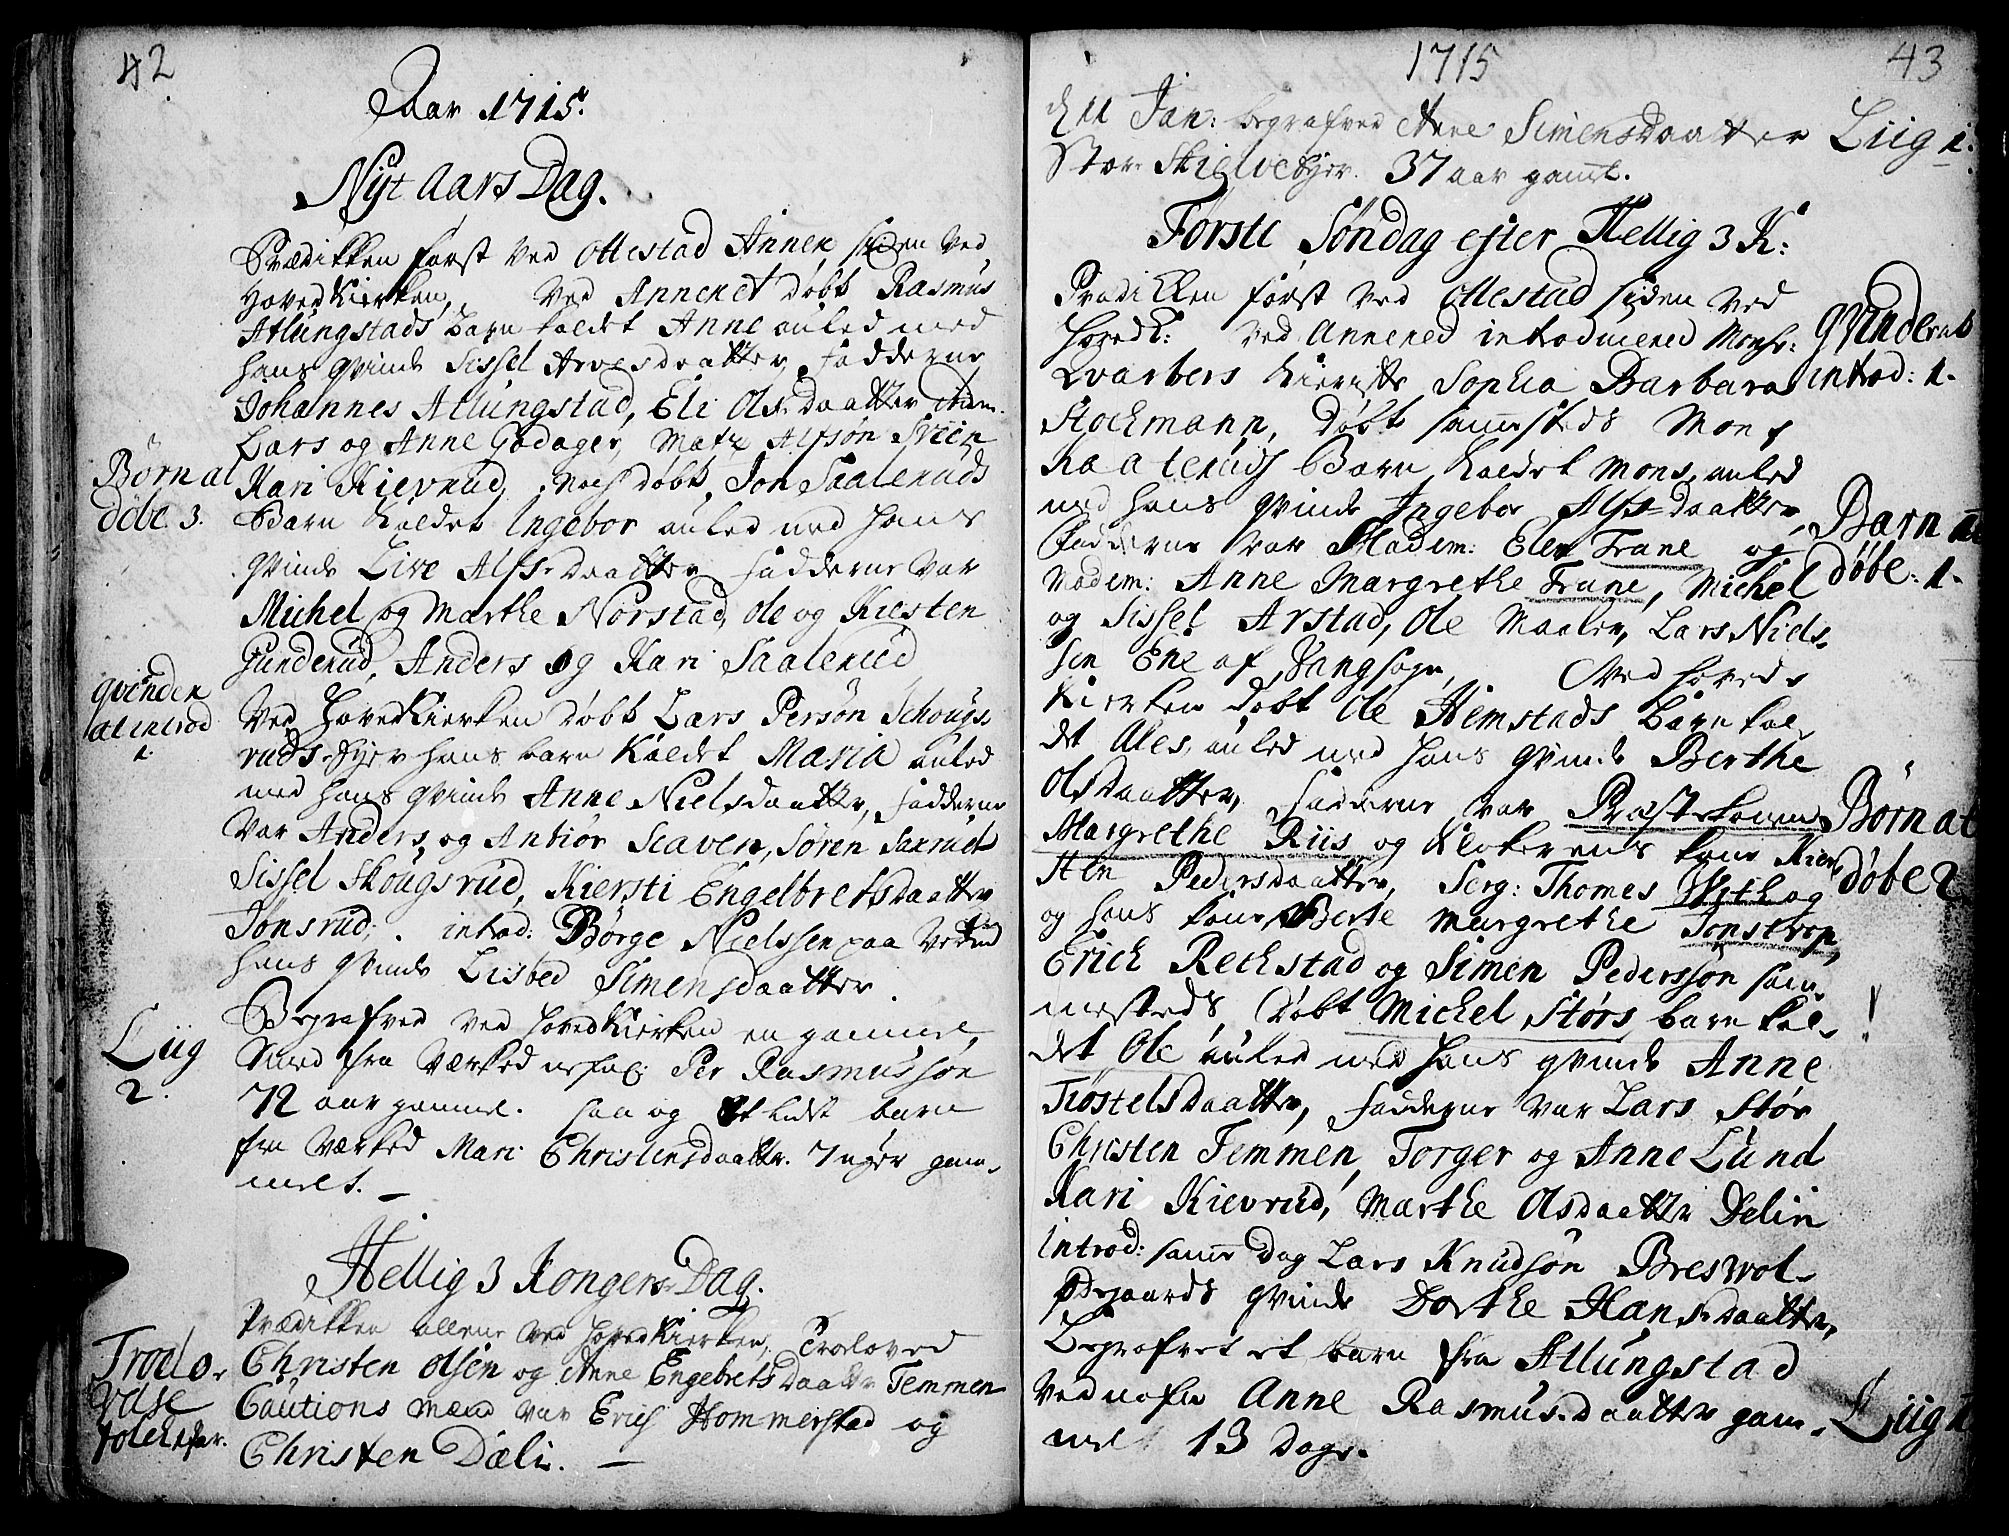 42
Aar 1715.
Nyt Aars Dag.
Prædikken først ved Ottestad Annex, siden ved
HovedKierken, ved Annexet døbt Rasmus
Atlungstads barn kaldet Anne auled med
hans qvinde Sissel Arvesdaatter, fadderne
Johannes Atlungstad, Eli Olsdaatter
Lars og Anne Godager, Matz Alfsøn Svien
Kari Kievrud, noch døbt Jon Saaleruds
Barn kaldet Ingebor auled med hans
qvinde Live Alfs-daatter fadderne var
Michel og Marthe Norstad, Ole og Kiesten
Gunderud, Anders og Kari Saalerud
Ved HovedKierken døbt Lars Persøn Schougs-
ruds-Eyer hans barn Kaldet Maria auled
med hans qvinde Anne Nielsdaatter, fadderne
var Anders og Antior Scaven, Søren Saxrud
Sissel Skougsrud, Kiersti Engelbretsdaatter
Jonsrud; introd: Børge Nielssen paa
hans qvinde Lisbed Simensdaatter.
Begrafved ved HovedKierken en gammel
Mand fra Værked nafnl: Per Rasmussøn
72 aar gammel. saa og et lidet barn
fra Værked Mari Christensdaatter. 7 uger gam-
melt. —
Børn at
døbe 3.
qvinden
at introd
1.
Liig
2.
Hellig 3 Konger-Dag.
Prædikken allene ved HovedKierken, Troloved
Christen Olsen og Anne Engebretsdaatter Temmen
Cautions mænd var Erich Hommerstad og
Christen Dæli. —
Trolo-
vede
folck 1 par.
1715
43
d 11 Jan: begrafved Anne Simensdaatter
Stor Skielve Eyer. 37 aar gammel.
Liig 1.
Første Søndag efter Hellig 3 K:
Prædikken først ved Ottestad siden ved
HovedK: ved Annexed introducered Monsr:
Qvarbers Kieriste Sophia Barbara
Stockmann, døbt sammesteds Mons
Barn kaldet Mons, auled
med hans qvinde Ingebor Alfs-daatter,
Fadderne var Madem: Elen Trane og
Madem: Anne Margrethe Trane, Michel
og Sissel Arstad, Ole Maaler, Lars Niels-
sen Ene af Vangsogn, Ved hoved-
Kierken døbt Ole Hemstads barn kal-
det Ales, auled med hans qvinde Berthe
Olsdaatter, fadderne var Præstekonen
Margrethe Riis og Klokerens kone Kier-
sten Pedersdaatter, Serg: Thomes
og hans kone Berte Margrethe Jonstrop,
Erick Rechstad og Simen Pedersøn sam-
mesteds, døbt Michel Størs barn kal-
det Ole auled med hans qvinde Anne
Tiostelsdaatter, fadderne var Lars Stør
Christen Temmen, Torger og Anne Lund
Kari Kievrud, Marthe Olsdaatter Delin
Introd: samme Dag Lars Knudsøn Breswol-
ødegaards qvinde Dorthe Hans-daatter,
Begrafvet et barn fra Atlungstad
ved nafn Anne Rasmus-daatter gam-
mel 13 dage.
qvinder at
introd: 1.
Barn at
døbe: 1.
Børn at
døbe 2
!
Liig 1